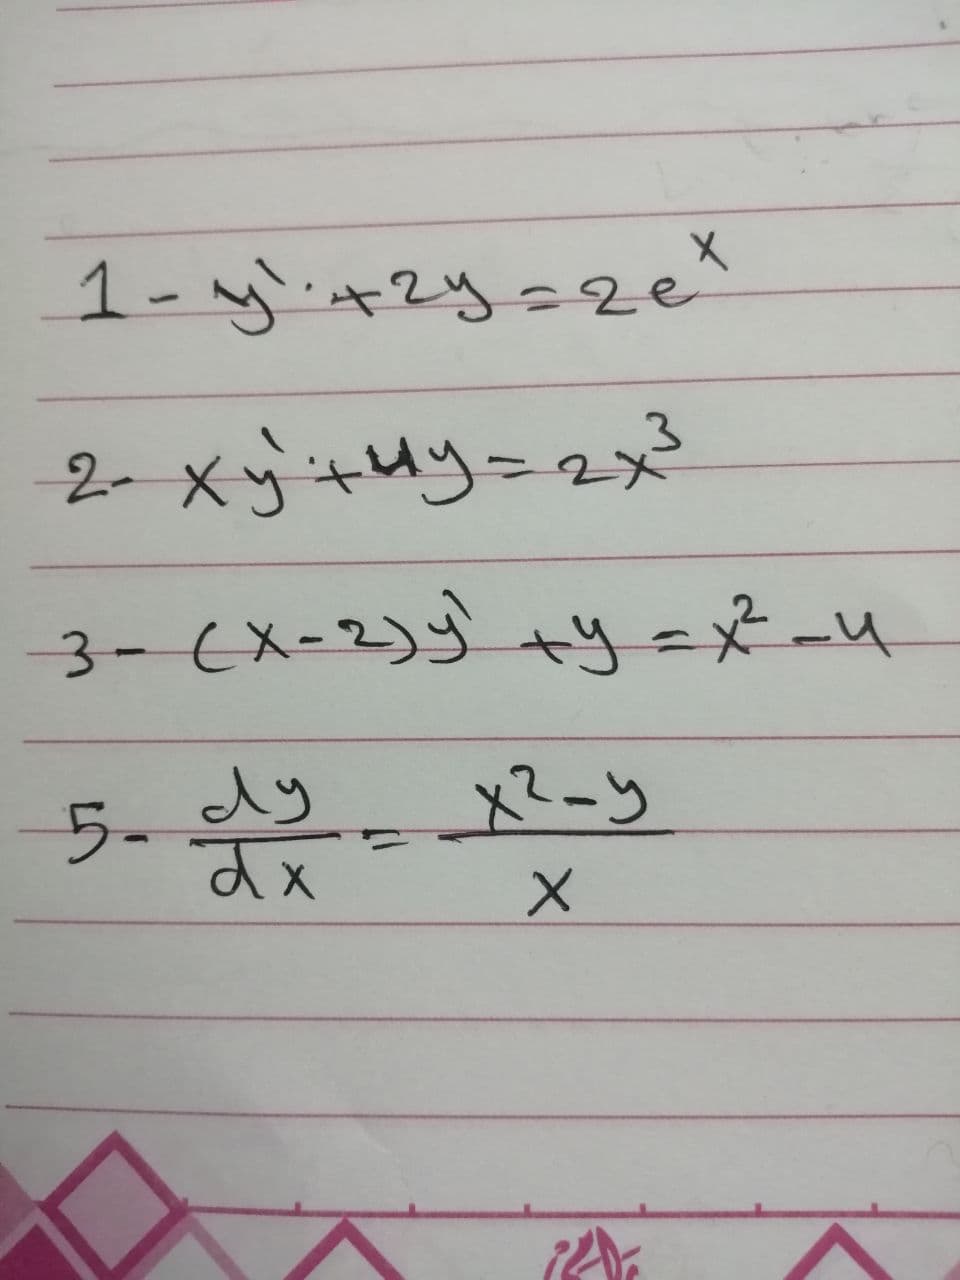 1 - y` + 2y = 2e^x
2- xy` + 4y = 2x^3
3 - (x-2)y` + y = x^2 - 4
5- dy/dx = x^2-y/x